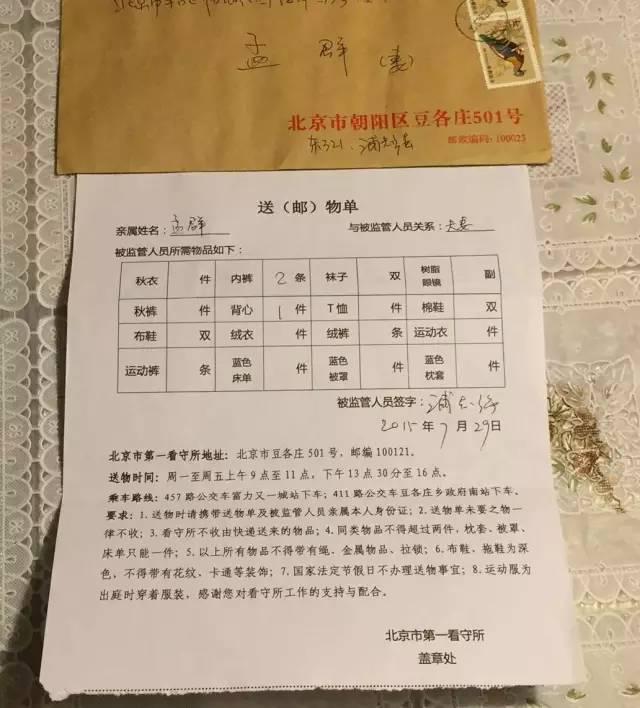 孟 群 (妻)
北京市朝阳区豆各庄501号
邮政编码：100023
东321
送（邮）物单
亲属姓名：孟群 与被监管人员关系：夫妻
被监管人员所需物品如下：
秋衣 件 内裤 2条 袜子 双 树脂眼镜 副
秋裤 件 背心 1件 T恤 件 棉鞋 双
布鞋 双 绒衣 件 绒裤 条 运动衣 件
运动裤 条 蓝色床单 件 蓝色被罩 件 蓝色枕套 件
被监管人员签字：浦志强
2015年7月29日
北京市第一看守所地址：北京市豆各庄 501 号，邮编 100121。
送物时间：周一至周五上午 9 点至 11 点，下午 13 点 30 分至 16 点。
乘车路线：457 路公交车富力又一城站下车；411 路公交车豆各庄乡政府南站下车。
要求：1.送物时请携带送物单及被监管人员亲属本人身份证；2.送物单未要之物一
律不收；3.看守所不收由快递送来的物品；4.同类物品不得超过两件，枕套、被罩、
床单只能一件；5.以上所有物品不得带有绳、金属物品、拉锁；6.布鞋，拖鞋为深
色，不得带有花纹、卡通等装饰；7.国家法定节假日不办理送物事宜；8.运动服为
出庭时穿着服装，感谢您对看守所工作的支持与配合。
北京市第一看守所
盖章处